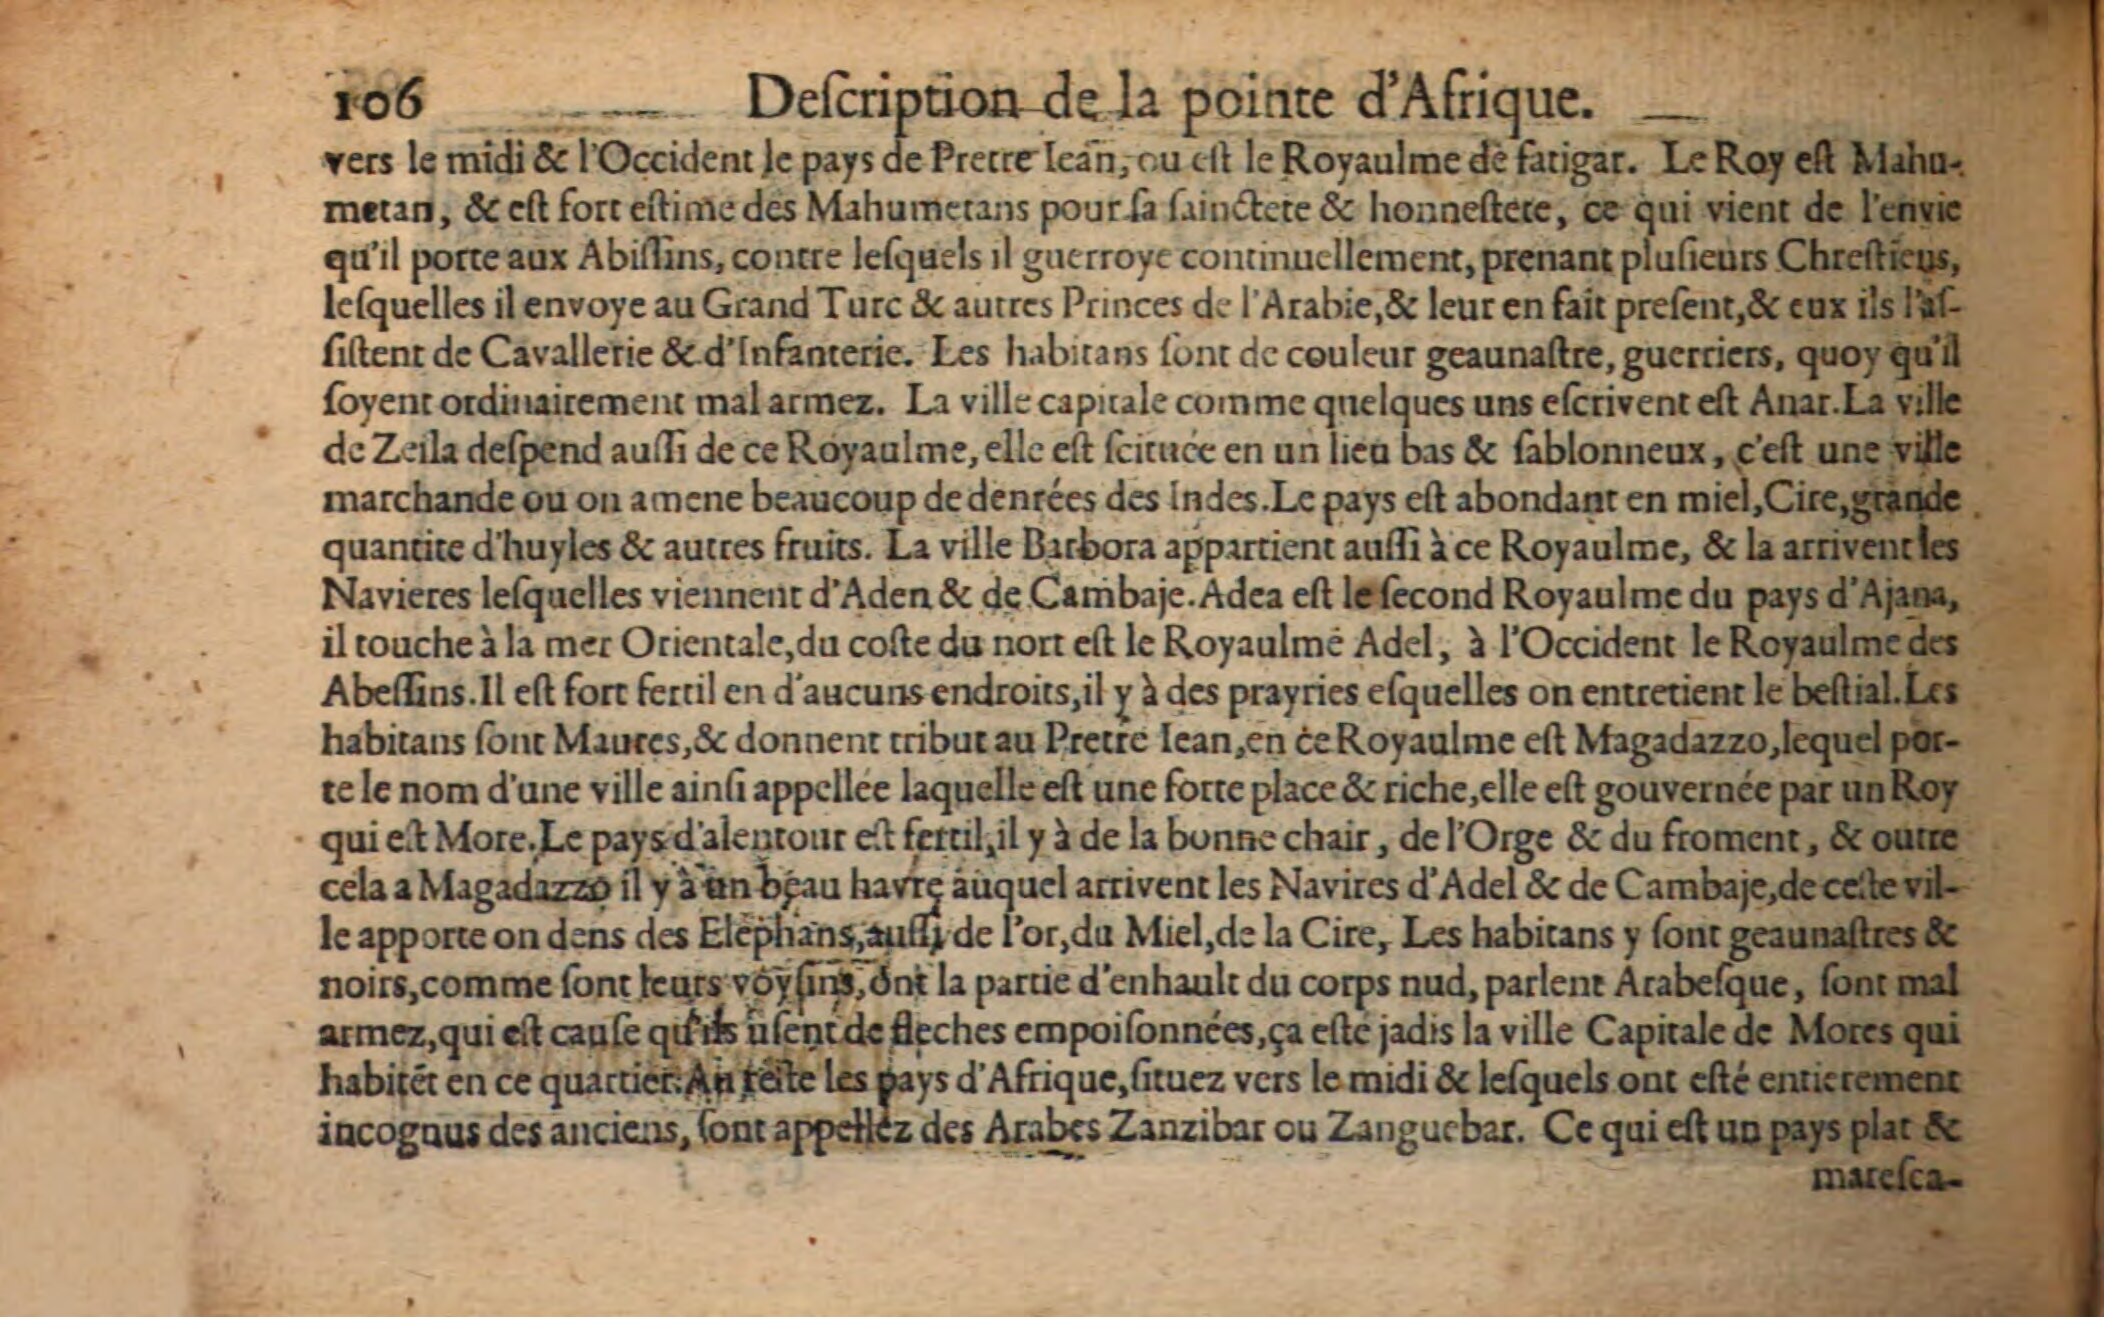 106 Deſcription de la pointe d'Afrique.
vers le midi & l'Occident le pays de Pretre Iean, ou eſt le Royaulme de fatigar. Le Roy eſt Mahu-
metan, & eſt fort eſtime des Mahumetans pour ſa ſainctete & honneſtete, ce qui vient de l'envie
qu'il porte aux Abiſſins, contre leſquels il guerroye continuellement, prenant pluſieurs Chreſticus,
leſquelles il envoye au Grand Turc & autres Princes de l'Arabie, & leur en fait preſent, & eux ils l'aſ-
ſiſtent de Cavallerie & d'Infanterie. Les habitans ſont de couleur geaunaſtre, guerriers, quoy qu'il
ſoyent ordinairement mal armez. La ville capitale comme quelques uns eſcrivent eſt Anar. La ville
de Zeila deſpend auſſi de ce Royaulme, elle eſt ſcituée en un lieu bas & ſablonneux, c'eſt une ville
marchande ou on amene beaucoup de denrées des Indes. Le pays eſt abondant en miel, Cire, grande
quantite d'huyles & autres fruits. La ville Barbora appartient auſſi à ce Royaulme, & la arrivent les
Navieres leſquelles viennent d'Aden & de Cambaje. Adea eſt le ſecond Royaulme du pays d'Ajana,
il touche à la mer Orientale, du coſte du nort eſt le Royaulme Adel, à l'Occident le Royaulme des
Abeſſins. Il eſt fort fertil en d'aucuns endroits, il y à des prayries eſquelles on entretient le beſtial. Les
habitans ſont Maures, & donnent tribut au Pretre Iean, en ce Royaulme eſt Magadazzo, lequel por-
te le nom d'une ville ainſi appellée laquelle eſt une forte place & riche, elle eſt gouvernée par un Roy
qui eſt More. Le pays d'alentour eſt fertil, il y à de la bonne chair, de l'Orge & du froment, & outre
cela a Magadazzo il y à un beau havre auquel arrivent les Navires d'Adel & de Cambaje, de ceſte vil-
le apporte on dens des Elephans, auſſi de l'or, du Miel, de la Cire, Les habitans y ſont geaunaſtres &
noirs, comme ſont leurs voyſins, ont la partie d'enhault du corps nud, parlent Arabeſque, ſont mal
armez, qui eſt cauſe qu'ils uſent de fleches empoiſonnées, ça eſte jadis la ville Capitale de Mores qui
habitēt en ce quartier. Au reſte les pays d'Afrique, ſituez vers le midi & leſquels ont eſté entierement
incognus des anciens, ſont appellez des Arabes Zanzibar ou Zanguebar. Ce qui eſt un pays plat &
mareſca-